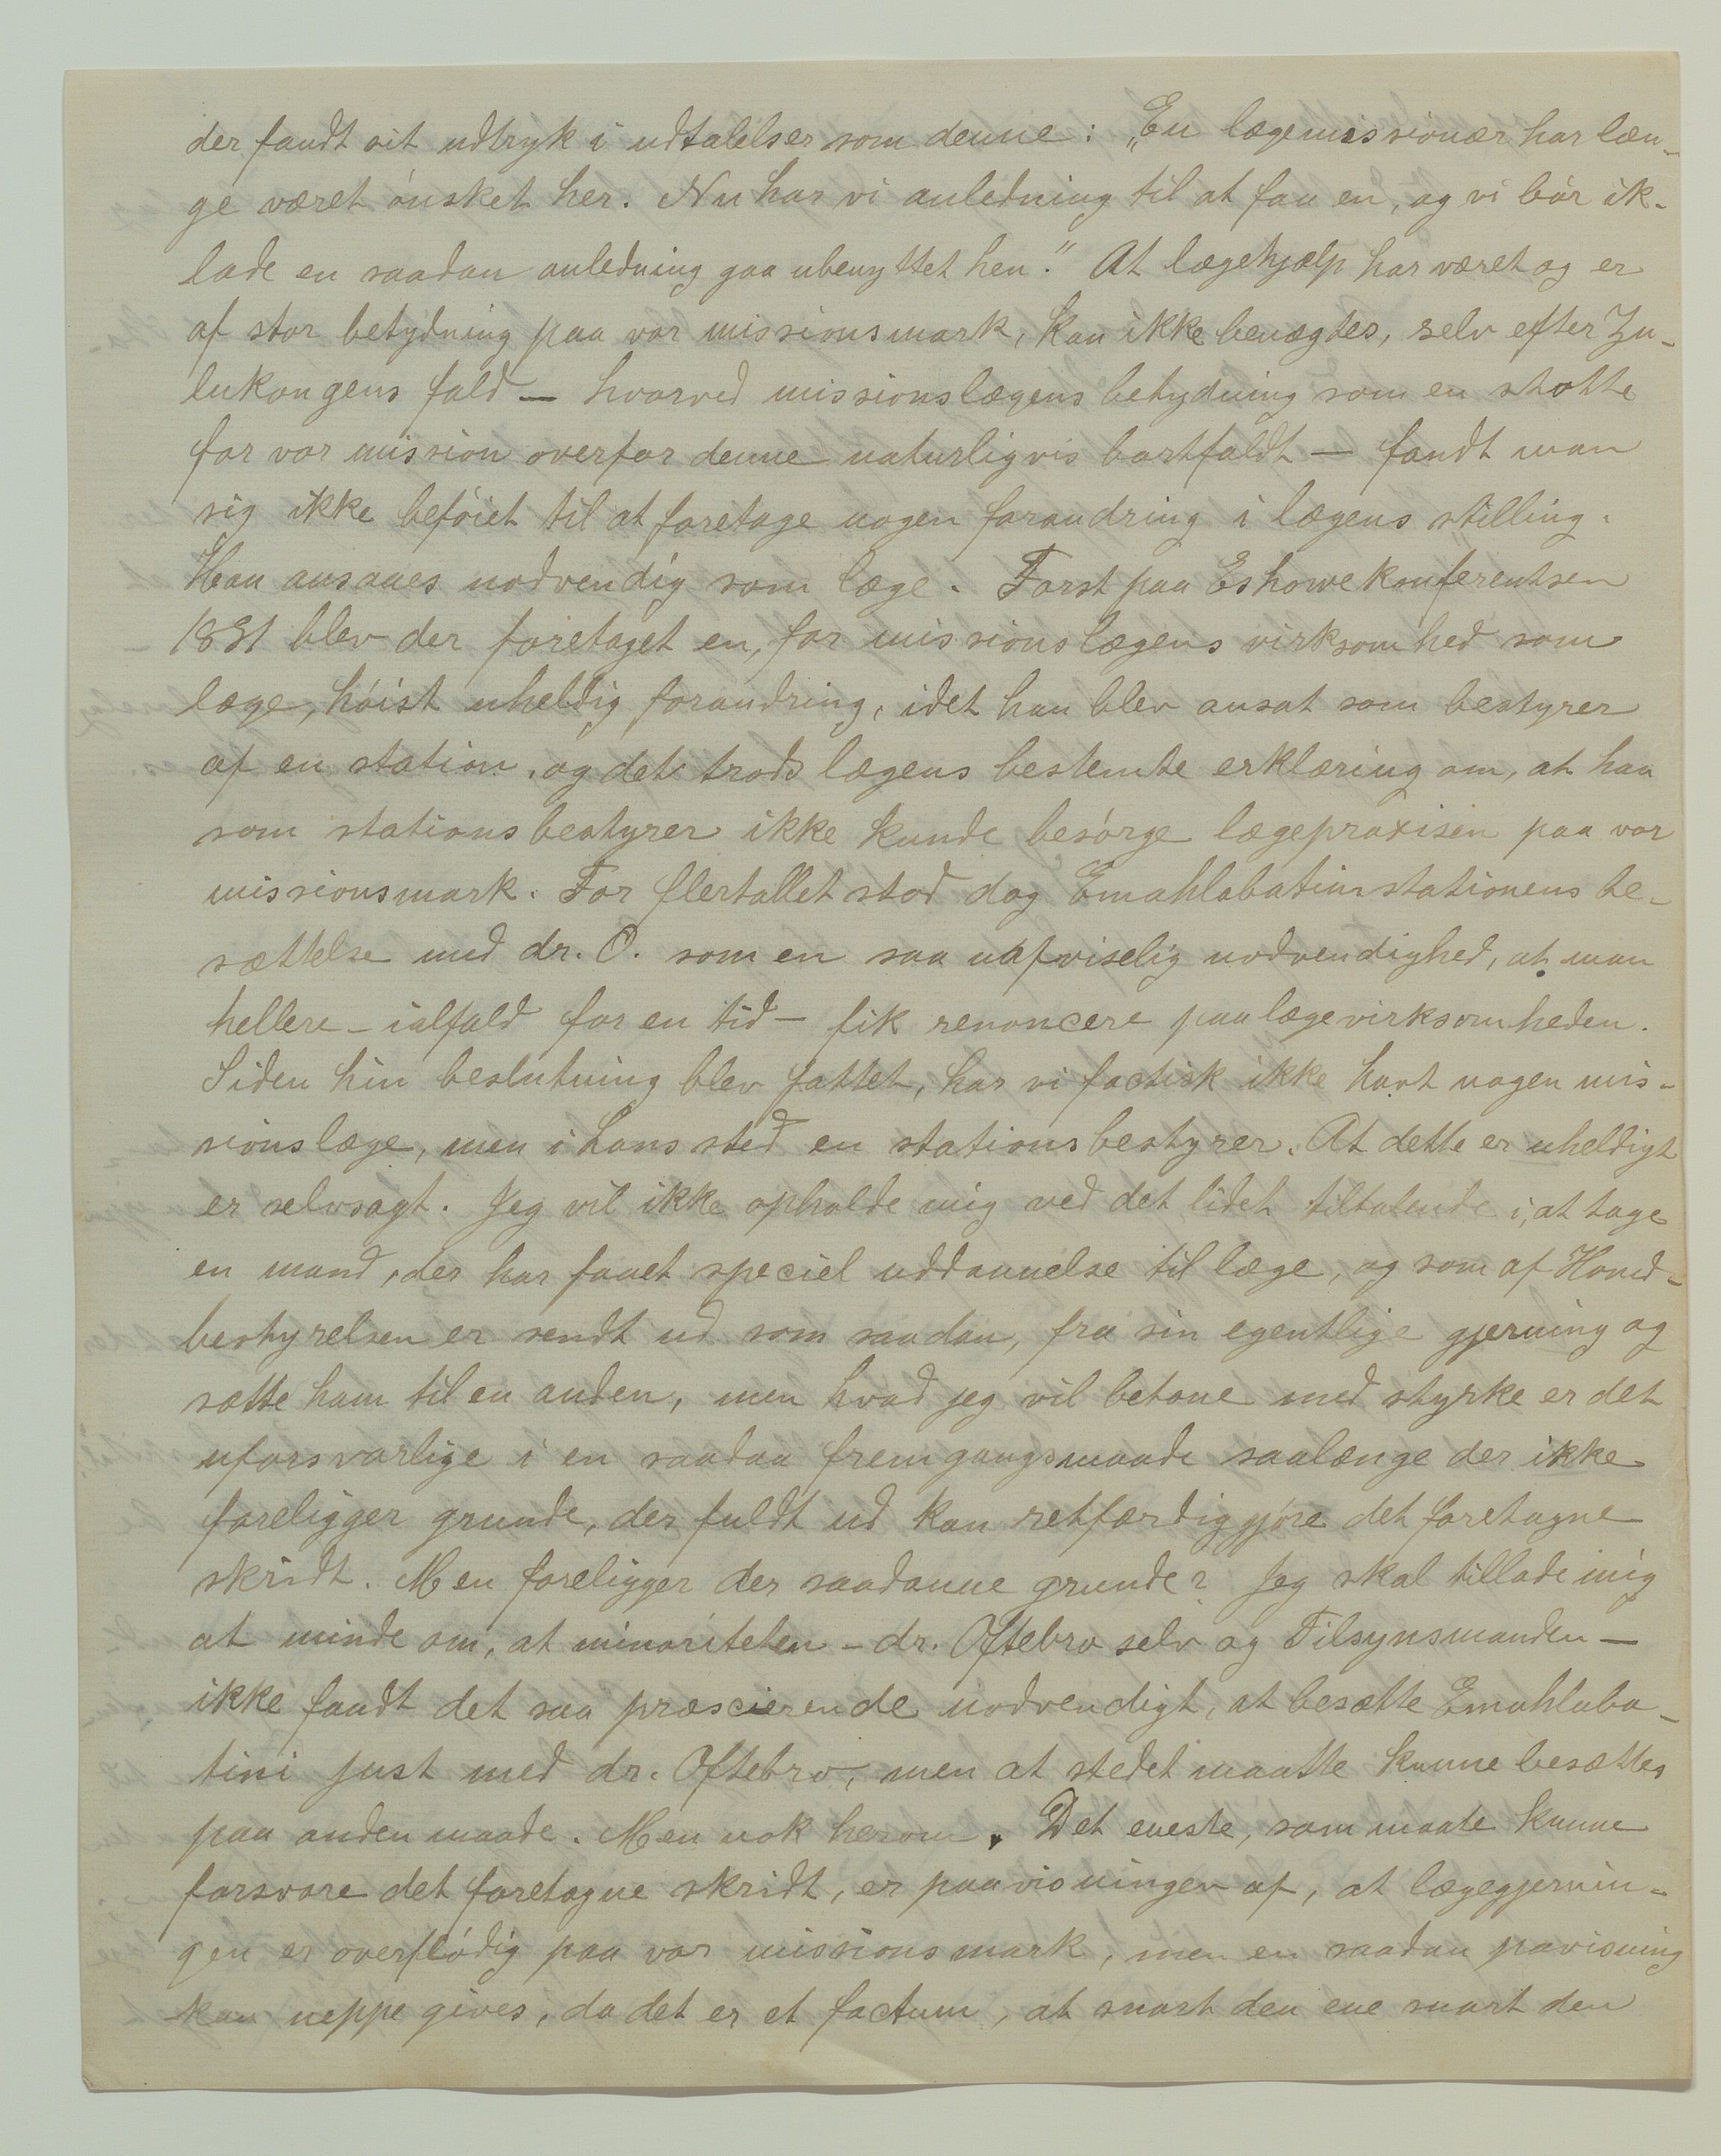 der fandt sit udtryk i udtalelser som denne: „En lægemissionær har læn-
ge været ønsket her. Nu har vi anledning til at faa en, og vi bør ik-
lade en saadan anledning gaa ubenyttet hen." At lægehjælp har været og er
af stor betydning paa vor missionsmark, kan ikke benægtes, selv efter Zu-
lukongens fald — hvorved missionslægens betydning som en støtte
for vor mission overfor denne naturligvis bortfaldt — fandt man
sig ikke beføiet til at foretage nogen forandring i lægens stilling.
Han ansaaes nødvendig som læge. Først paa Eshowekonferentsen
1881 blev der foretaget en, for missionslægens virksomhed som
læge, høist uheldig forandring, idet han blev ansat som bestyrer
af en station, og det trods lægens bestemte erklæring om, at han
som stationsbestyrer ikke kunde besørge lægepraxisen paa vor
missionsmark. For flertallet stod dog Emahlabatinistationens be-
sættelse med dr. O. som en saa uafviselig nødvendighed, at man
hellere – ialfald for en tid – fik renoncere paa lægevirksomheden.
Siden hin beslutning blev fattet, har vi factisk ikke havt nogen mis-
sionslæge, men i hans sted en stationsbestyrer. At dette er uheldigt
er selvsagt. Jeg vil ikke opholde mig ved det lidet tiltalende i, at tage
en mand, der har faaet speciel uddannelse til læge, og som af Hoved-
bestyrelsen er sendt ud som saadan, fra sin egentlige gjerning og
sætte ham til en anden, men hvad jeg vil betone med styrke er det
uforsvarlige i en saadan fremgangsmaade saalænge der ikke
foreligger grunde, der fuldt ud kan retfærdiggjøre det foretagne
skridt. Men foreligger der saadanne grunde? Jeg skal tillade mig
at minde om, at minoriteten – dr. Oftebro selv og Tilsynsmanden —
ikke fandt det saa præscierende nødvendigt, at besætte Emahlaba-
tini just med dr. Oftebro, men at stedet maatte kunne besættes
paa anden maade. Men nok herom. Det eneste, som maate kunne
forsvare det foretagne skridt, er paavisningen af, at lægegjernin-
gen er overflødig paa vor missionsmark, men en saadan pavisning
kan neppe gives, da det er et factum, at snart den ene snart den